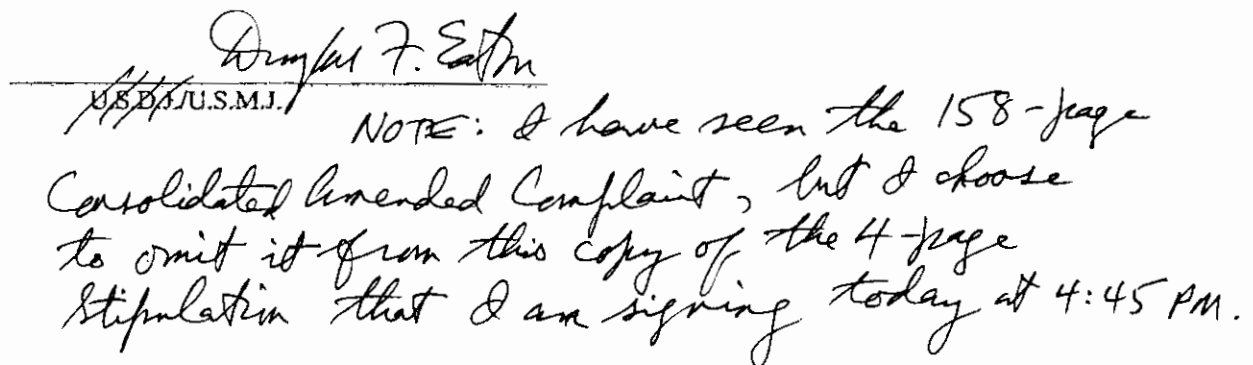 Douglas F. Eaton
U.S.D.J./U.S.M.J.
NOTE: I have seen the 158-page
Consolidated Amended Complaint, but I choose
to omit it from this copy of the 4-page
Stipulation that I am signing today at 4:45 PM.